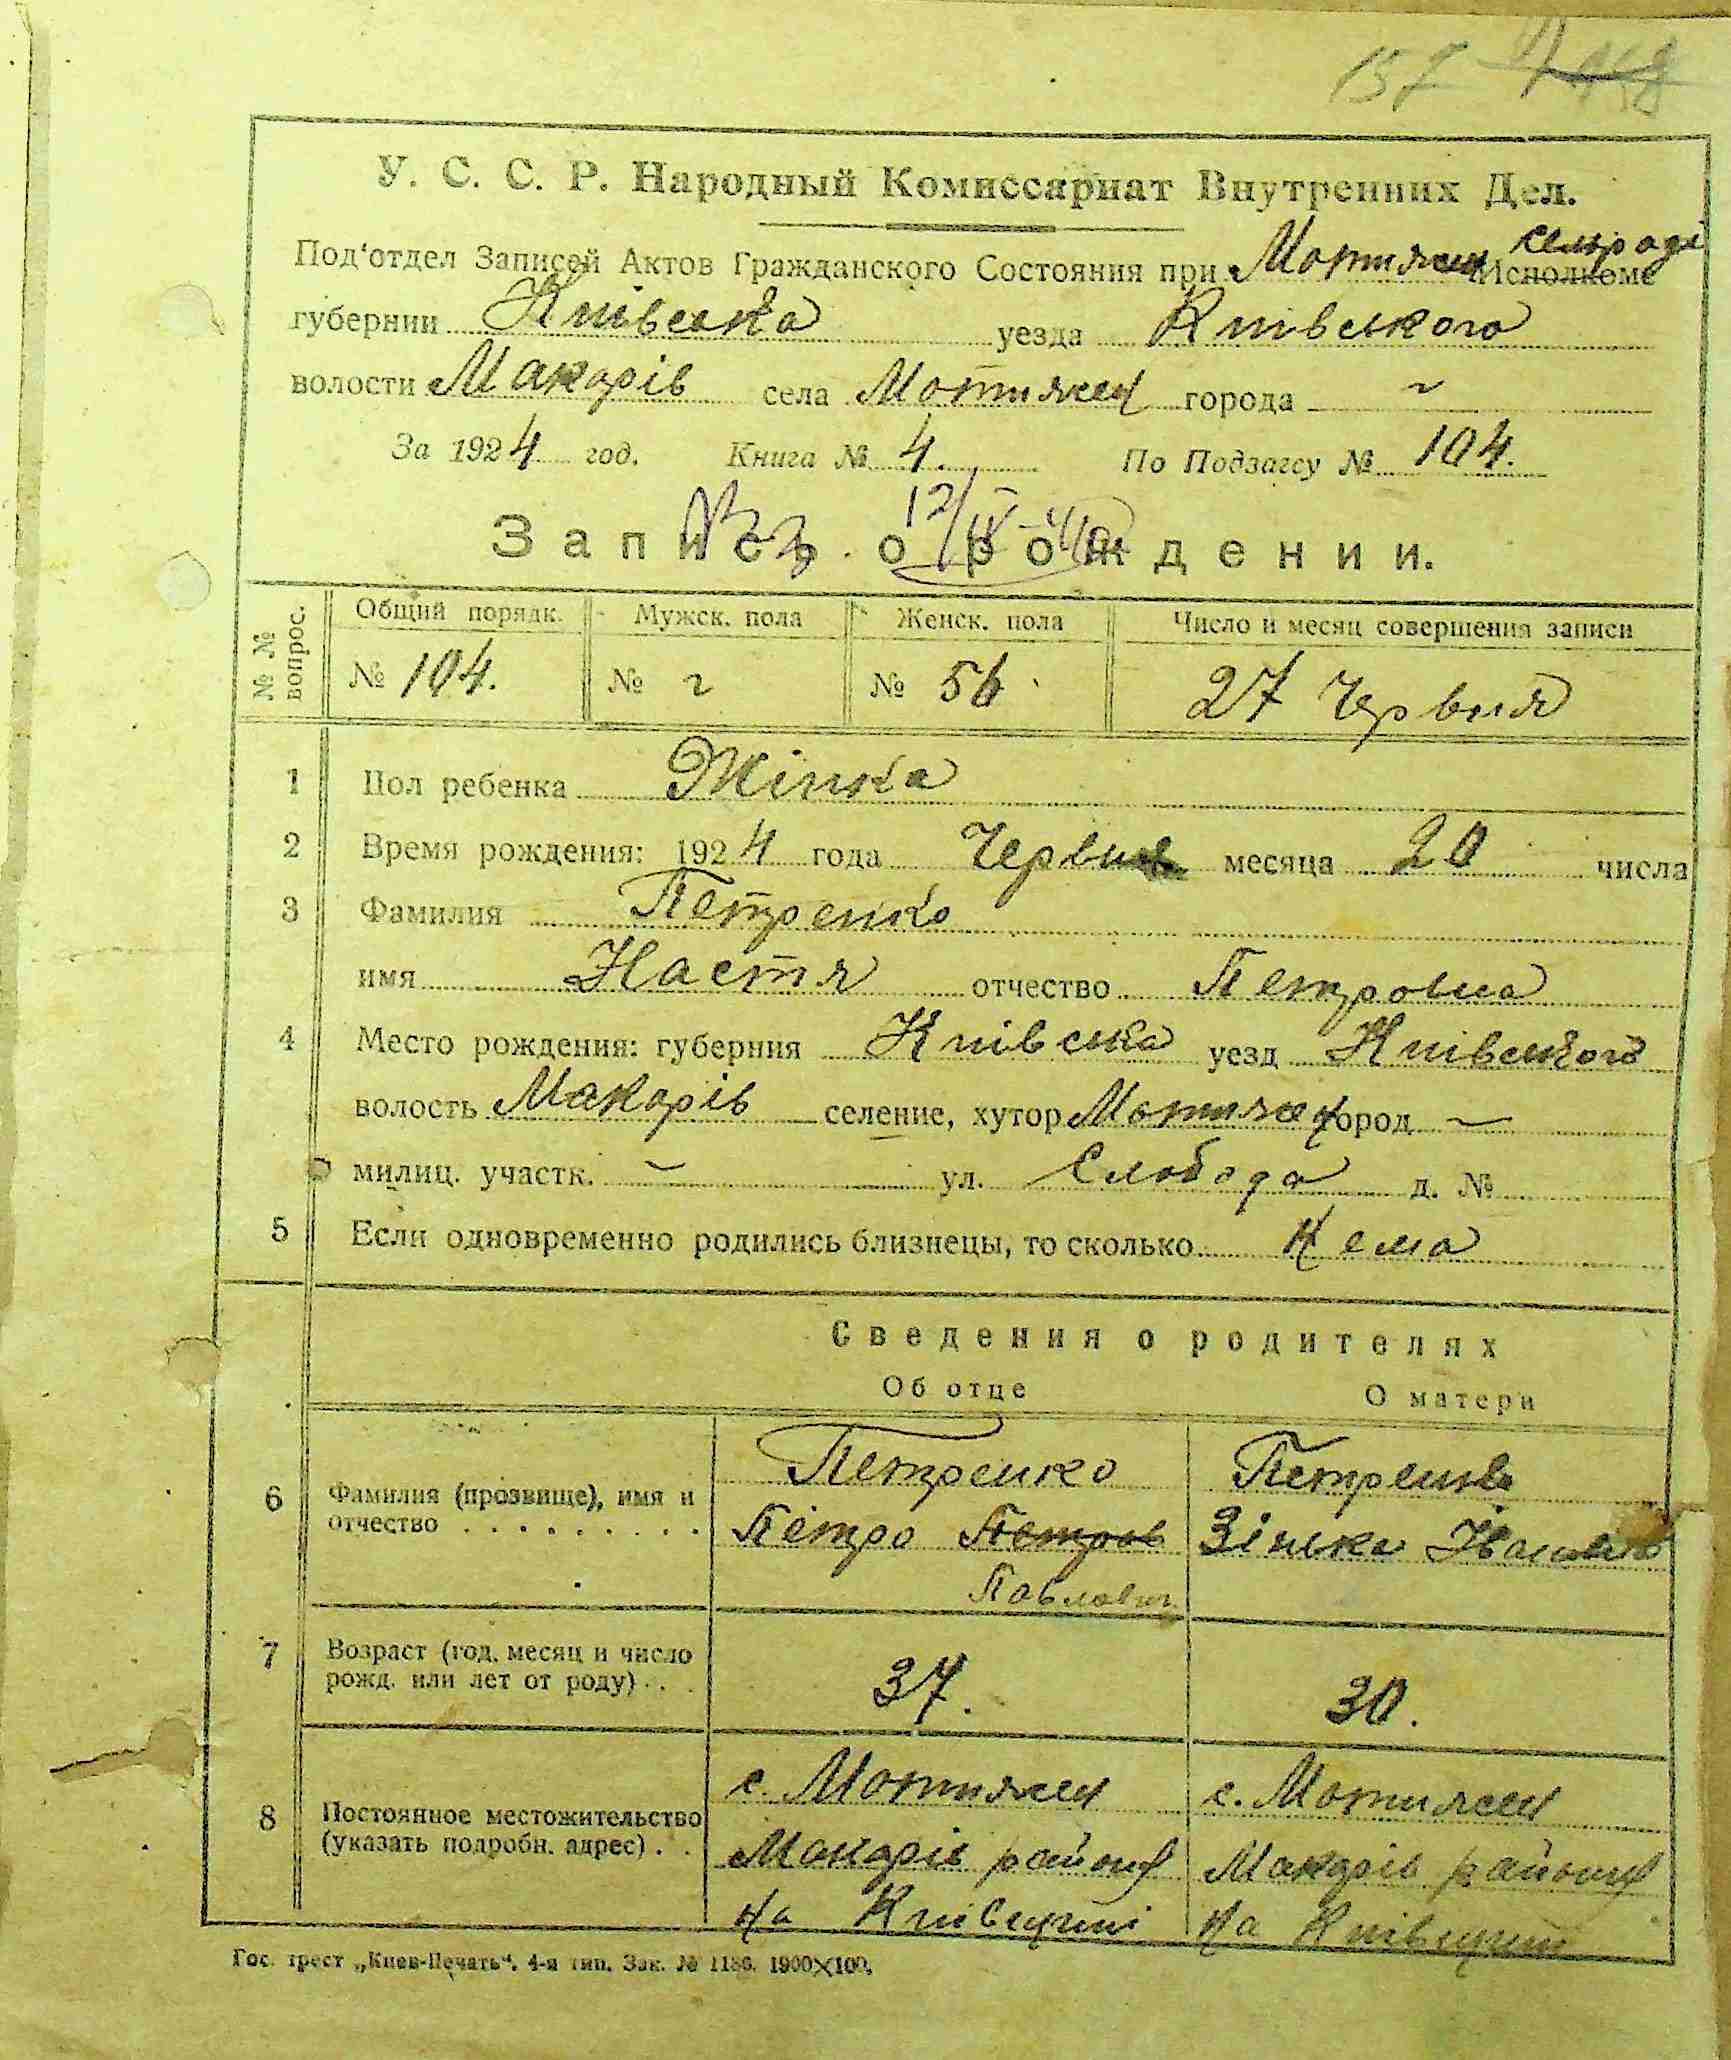 157
У. С. С. Р. Народный Комиссариат Внутренних Дел.
Под'отдел Записей Актов Гражданского Состояния при Мотижин Сельраді Исполкоме
губернии Київська уезда Київського
волости Макарів села Мотижин города ~
За 1924 год. Книга № 4. По Подзагсу № 104.
Запись о рождении.
№№ вопрос. Общий порядк. Мужск. пола Женск. пола Число и месяц совершения записи
№ 104. № ~ № 56 27 Червня
1 Пол ребенка Жінка
2 Время рождения: 1924 года Червня месяца 20 числа
3 Фамилия Петренко
имя Настя отчество Петровна
4 Место рождения: губерния Київська уезд Київського
волость Макарів селение, хутор Мотижин город ~
милиц. участк. ~ ул. Слобода д. №
5 Если одновременно родились близнецы, то сколько Нема
Сведения о родителях
Об отце О матери
Петренко Петренко
6 Фамилия (прозвище), имя и
отчество . . . . . . . . . . Петро Петров Зінька Іванівна
Павлович
7 Возраст (год, месяц и число
рожд. или лет от роду) . . 37. 30.
с. Мотижин с. Мотижин
8 Постоянное местожительство
(указать подробн. адрес) . . Макарів району Макарів району
На Київщині На Київщині
Гос. трест „Киев-Печать“. 4-я тип. Зак. № 1186. 1900×100.